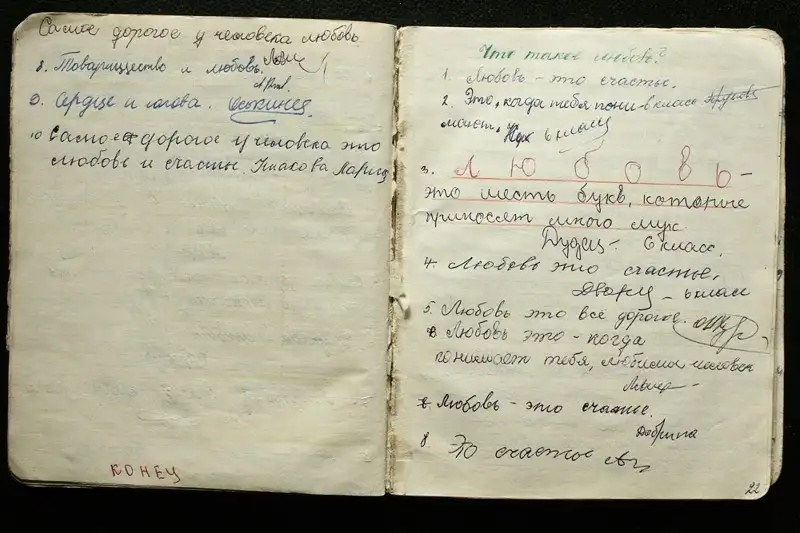 Самое дорогое у человека любовь.
8. Товарищество и любовь.
9. Сердце и голова.
10 Самое дорогое у человека это
любовь и счастье.
КОНЕЦ
Что такое любовь?
1. Любовь - это счастье.
2. Это, когда тебя
6 класс
3. Л Ю Б О В Ь -
это шесть букв, которые
приносят много мук
6 класс.
4. Любовь это счастье.
6 класс
5. Любовь это всё дорогое.
Любовь это - когда
понимает тебя, любимый человек
Любовь - это счастье.
8. Это счастье
22